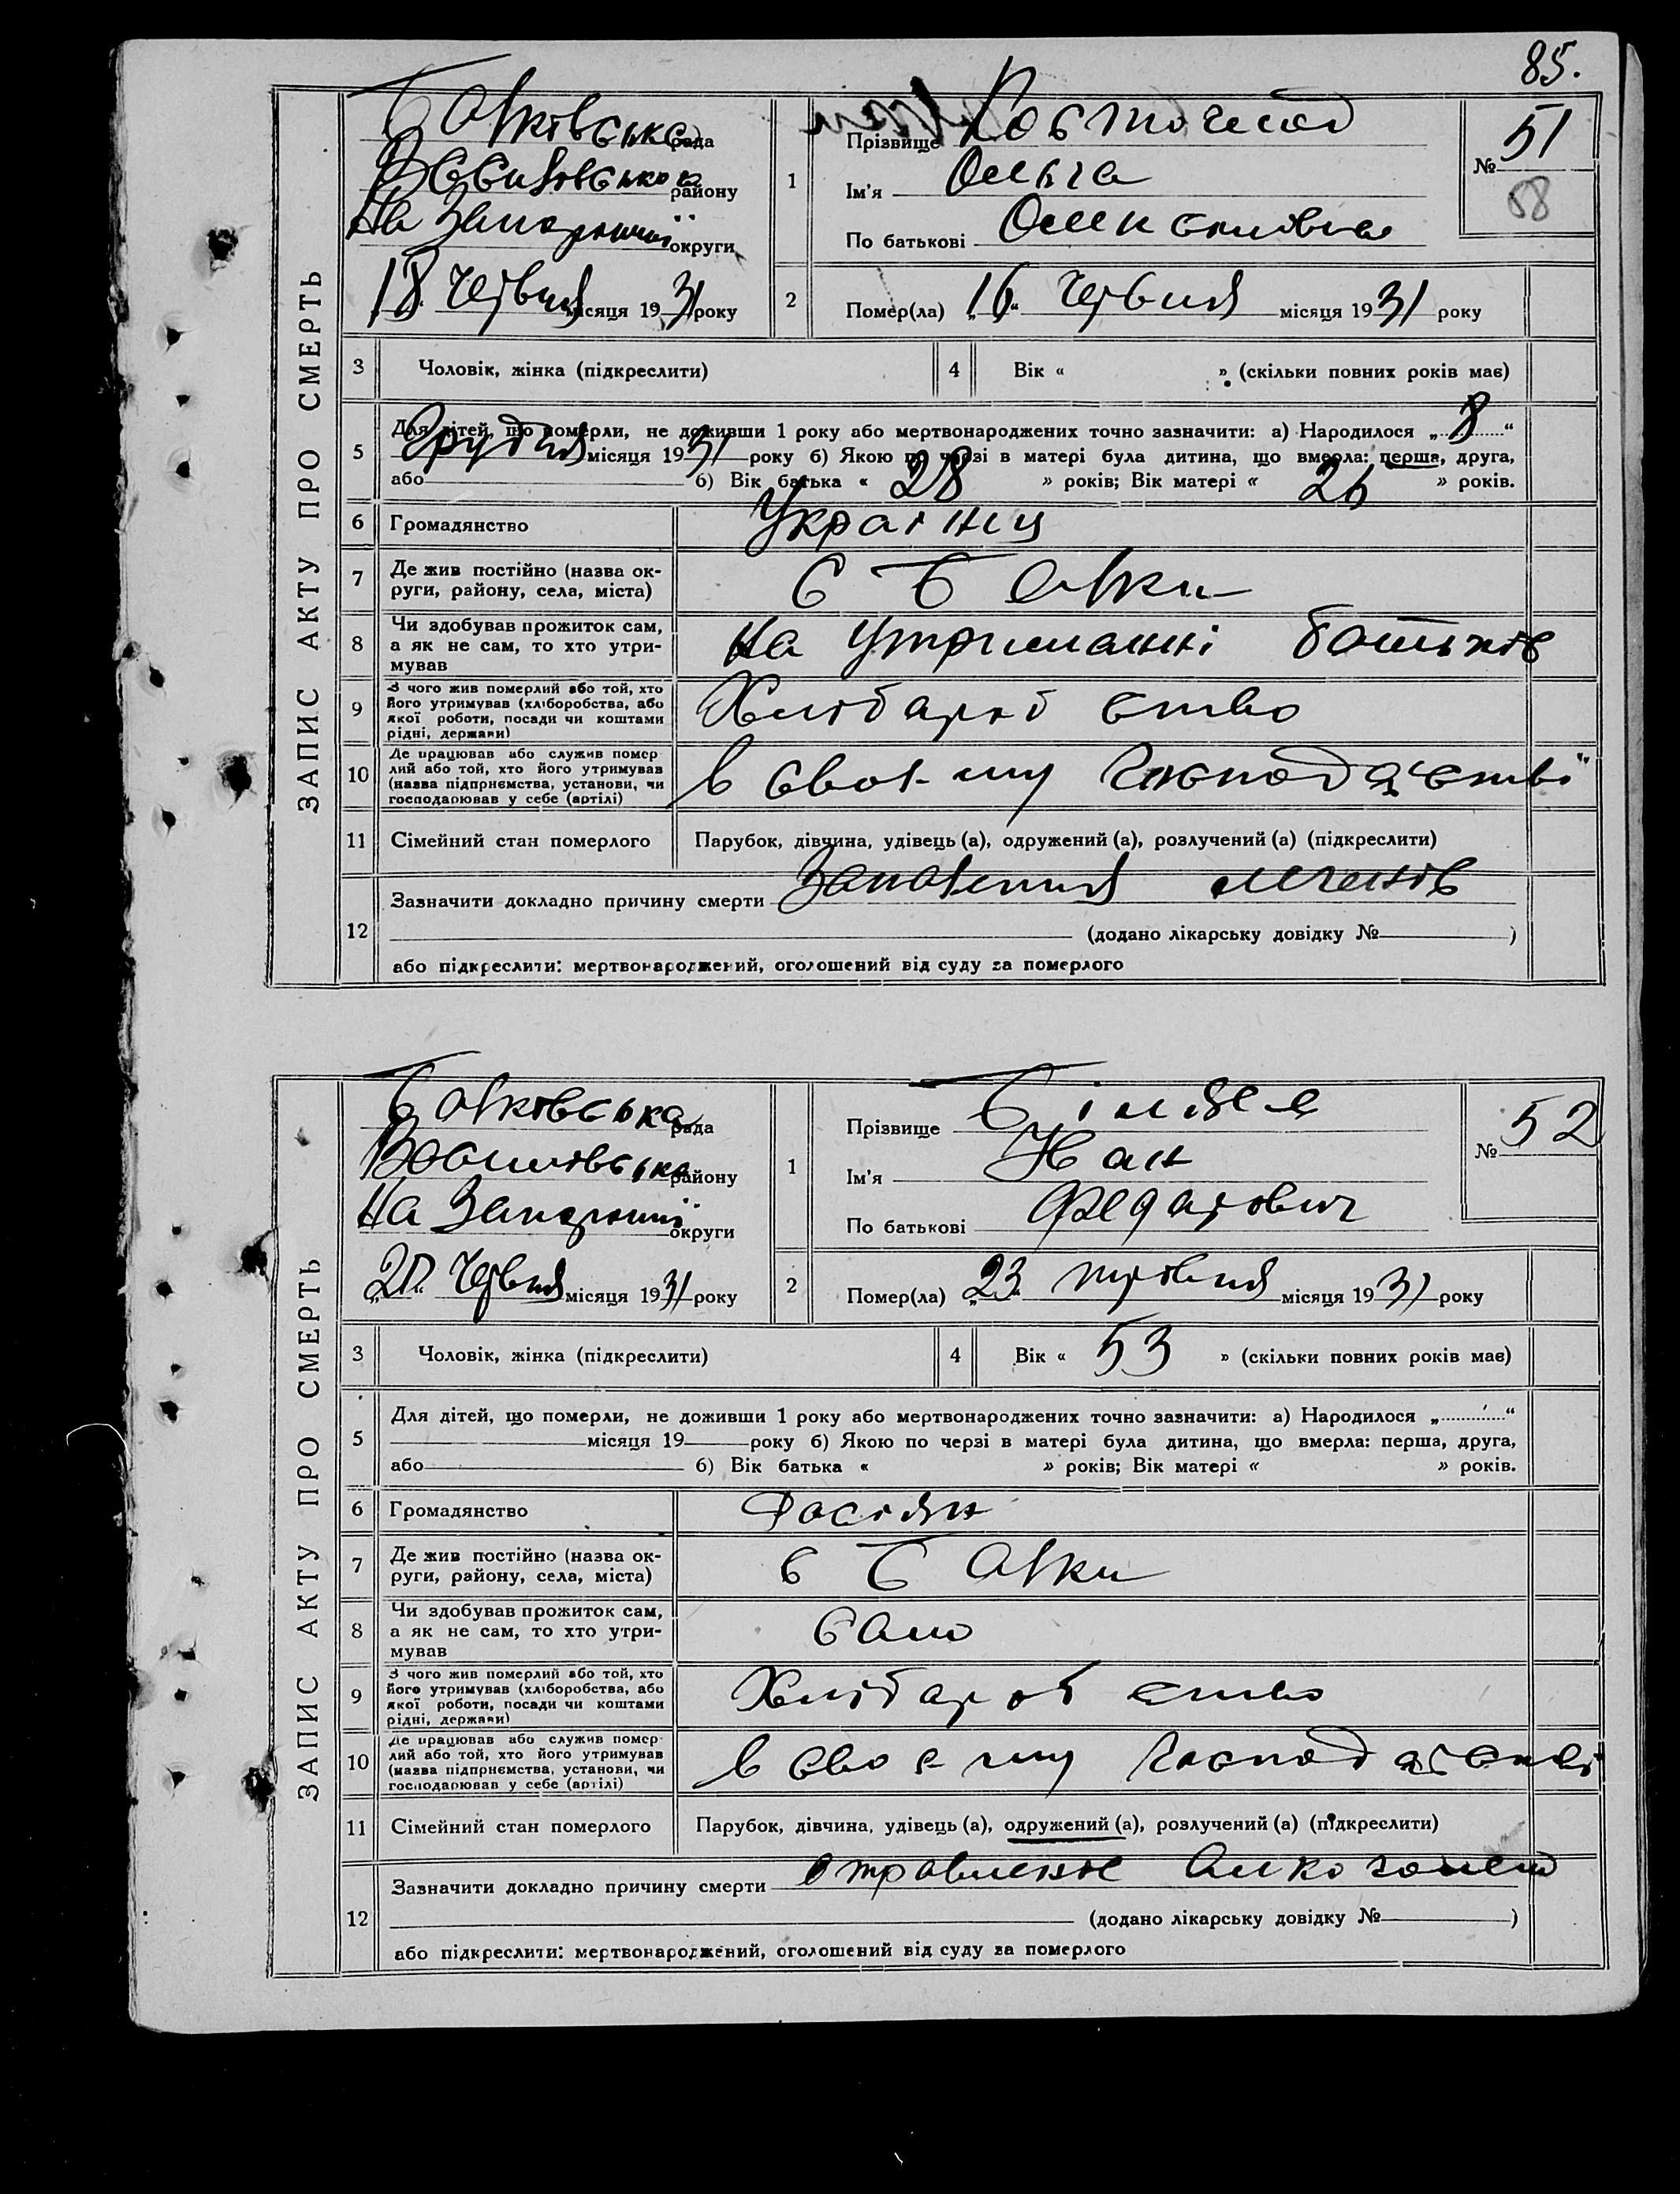 85.
ЗАПИС АКТУ ПРО СМЕРТЬ
Балківська рада
Василівського району
На Запоріжжі округи
18 червня місяця 1931 року
1
Прізвище
Ім'я Ольга
По батькові
№ 51
58
2
Помер(ла) „16“ червня місяця 1931 року
3 Чоловік, жінка (підкреслити)
4 Вік « » (скільки повних років має)
5 Для дітей, що померли, не доживши 1 року або мертвонароджених точно зазначити: а) Народилося „8“
Грудня місяця 1931 року б) Якою по черзі в матері була дитина, що вмерла: перша, друга,
або 6) Вік батька « 28 » років; Вік матері « 26 » років.
6 Громадянство Українці
7 Де жив постійно (назва ок-
руги, району, села, міста) С Балки
8 Чи здобував прожиток сам,
а як не сам, то хто утри-
мував на утриманні батьків
9 З чого жив померлий або той, хто
його утримував (хліборобства, або
якої роботи, посади чи коштами
рідні, держави) Хлібароб ство
10 Де працював або служив помер
лий або той, хто його утримував
(назва підприємства, установи, чи
господарював у себе (артілі) в своєму господарстві
11 Сімейний стан померлого Парубок, дівчина, удівець (а), одружений (а), розлучений (а) (підкреслити)
12 Зазначити докладно причину смерти Запалення легенів
(додано лікарську довідку № )
або підкреслити: мертвонароджений, оголошений від суду за померлого
ЗАПИС АКТУ ПРО СМЕРТЬ
Балківська рада
Василівська району
На Запоріжжі округи
„20“ червня місяця 1931 року
1
Прізвище
Ім'я Іван
По батькові Федарович
№ 52
2
Помер(ла) „23“ травня місяця 1931 року
3 Чоловік, жінка (підкреслити)
4 Вік « 53 » (скільки повних років має)
5 Для дітей, що померли, не доживши 1 року або мертвонароджених точно зазначити: а) Народилося „ “
місяця 19 року б) Якою по черзі в матері була дитина, що вмерла: перша, друга,
або 6) Вік батька « » років; Вік матері « » років.
6 Громадянство Росіян
7 Де жив постійно (назва ок-
руги, району, села, міста) С Балки
8 Чи здобував прожиток сам,
а як не сам, то хто утри-
мував Сам
9 З чого жив померлий або той, хто
його утримував (хліборобства, або
якої роботи, посади чи коштами
рідні, держави) Хлібароб ство
10 Де працював або служив помер
лий або той, хто його утримував
(назва підприємства, установи, чи
господарював у себе (артілі) в своєму господарстві
11 Сімейний стан померлого Парубок, дівчина, удівець (а), одружений (а), розлучений (а) (підкреслити)
12 Зазначити докладно причину смерти отравление Алкоголем
(додано лікарську довідку № )
або підкреслити: мертвонароджений, оголошений від суду за померлого